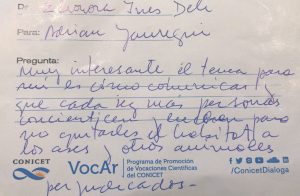 De: Zamora Ines Deli
Para: Adrian Jauregui
Pregunta:
Muy interesante el tema para
mi es cómo comunicar
que cada vez mas personas
concienticen para
no quitarles el habitat a
los ases y otros animales
perjudicados -
CONICET
VocAr
Programa de Promoción
de Vocaciones Científicas
del CONICET
/ConicetDialoga